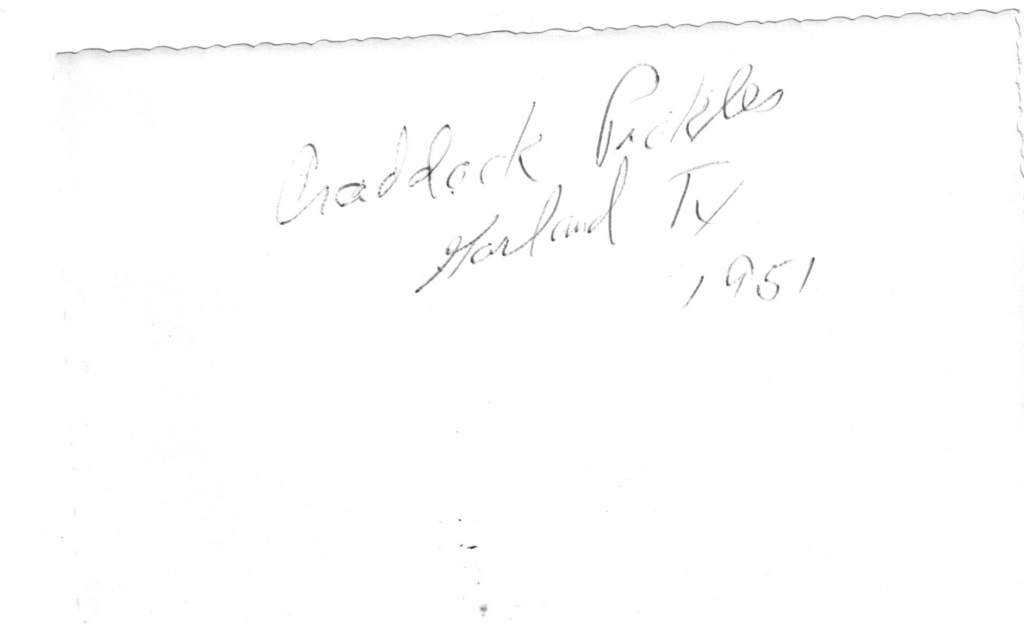 Craddock Pickles
Garland Tx
1951